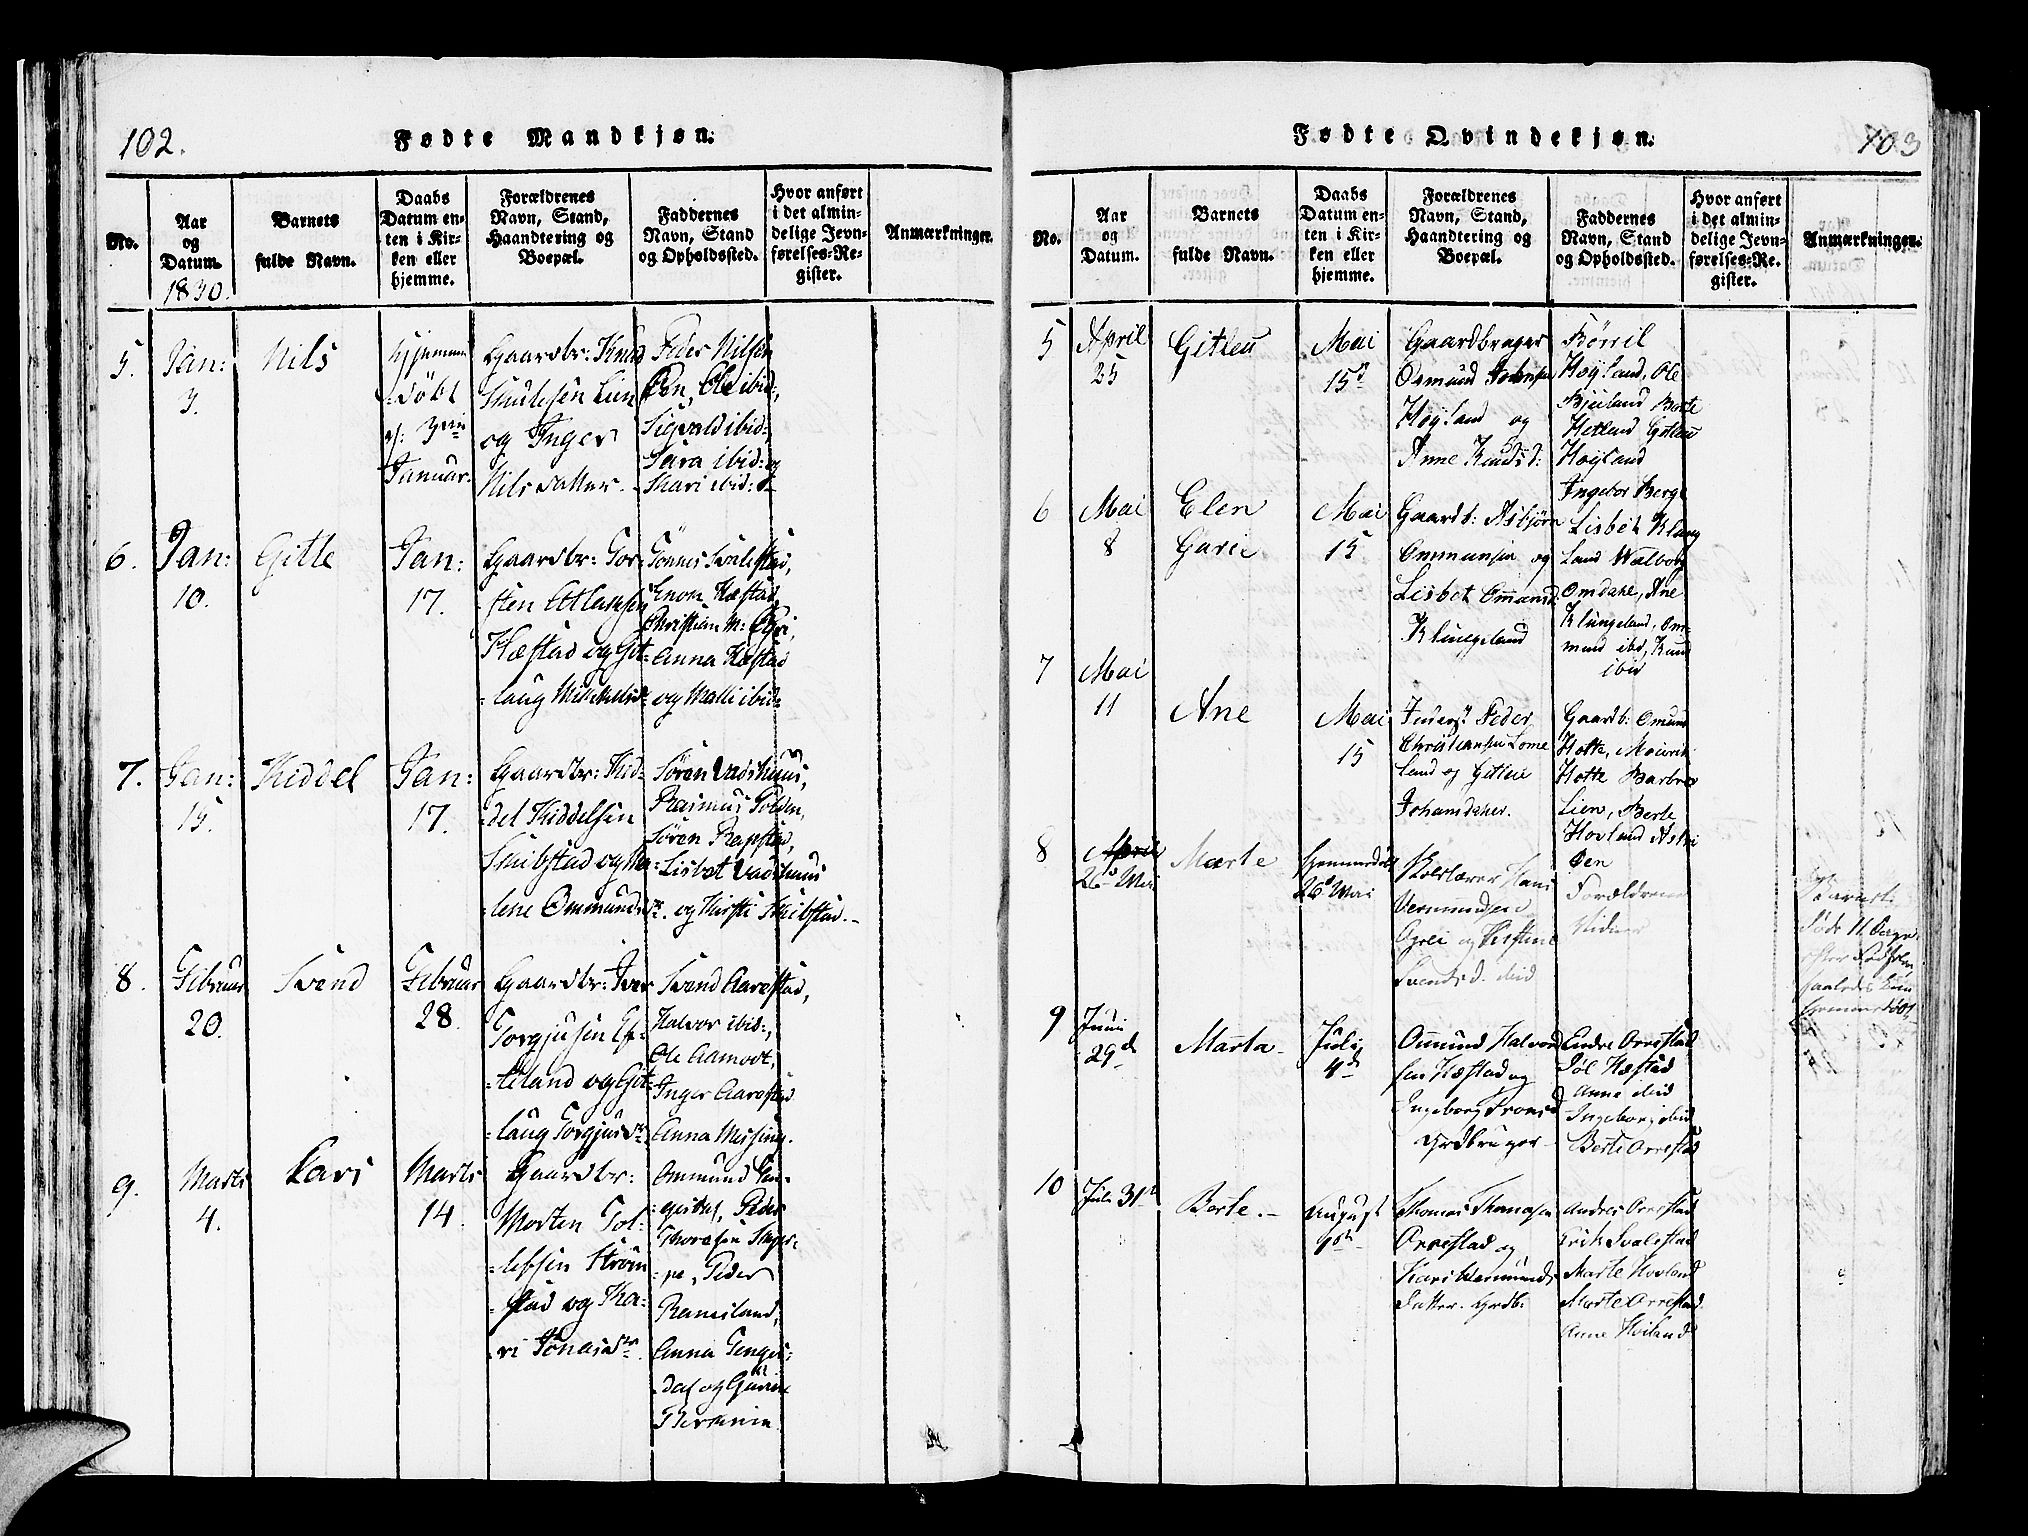 102.
Fødte Mandkjøn.
No.
Aar
og
Datum.
1830.
Barnets
fulde Navn.
Daabs
Datum en-
ten i Kir-
ken eller
hjemme.
Forældrenes
Navn, Stand,
Haandtering og
Boepæl.
Faddernes
Navn, Stand
og Opholdssted.
Hvor anført
i det almin-
delige Jevn-
førelses-Re-
gister.
Anmærkninger.
5.
Jan:
3.
Nils
hjemme
døbt
Januar.
Gaardbr: Knud
Skulesen Lien
og Inger
Nilsdatter.
Peder Nilsen
Øen, Ole ibid:,
Sigvald ibid:,
Sara ibid: og
Mari ibid:
6.
Jan:
10.
Gitle
Jan:
17.
Gaardbr: Tor-
sten Atlaksen
Hæstad og Git-
laug
Tønnes Svalestad,
Enom Hæstad,
Christian M: Egri,
Anna Hæstad
og Malli ibid:
7.
Jan:
15.
Kiddel
Jan:
17.
Gaardbr: Kid-
del Kiddelsen
Skibstad og
lene Ommunds
Søren Vadshuus,
Rasmus
Søren Rapstad,
Lisbet Vadshuus
og Kirsti Skibstad.
8.
Februar
20.
Svend
Februar
28.
Gaardbr: Iver
Torgjusen Ef-
teland og Git-
laug Torgjusdr
Svend Aarestad,
Halvor ibid:,
Ole Aamodt,
Inger Aarestad
Anna Messing.
9.
Marts
4.
Kari
Marts
14.
Gaardbr:
Morten Tol-
lefsen Strøm-
stad og Ka-
ri Jonasdr
Ommund Gen-
gisdal, Peder
Thoresen Skjer-
pe, Peder
Ramsland,
Anna Gengis-
dal og Gurine
103
Fødte Qvindekjøn.
No.
Aar
og
Datum.
Barnets
fulde Navn.
Daabs
Datum en-
ten i Kir-
ken eller
hjemme.
Forældrenes
Navn, Stand,
Haandtering og
Boepæl.
Faddernes
Navn, Stand
og Opholdssted.
Hvor anført
i det almin-
delige Jevn-
førelses-Re-
gister.
Anmærkninger.
5
April
25
Gitleu
Mai
15
Gaardbruger
Osmund
Høyland og
Anne Knudsd:
Børril
Høyland, Ole
Bjeiland Berte
Hetland Gitleu
Høyland
Ingebor Berge
6
Mai
8
Elen
Garie
Mai
15
Gaardb: Asbjørn
Ommunsen og
Lisbet Omansd
Klungeland
Lisbet Klung
land Walborg
Omdahl, Ane
Klungeland, Om-
mund ibd, Knud
ibid
7
Mai
11
Ane
Mai
15
Inderst Peder
Christiansen Lome
land og Gitleu
Johansdatter.
Gaardb: Omund
Hotte,
Hotte Barbro
Lien, Berte
Hovland Astri
Øen
8
April
26d Mai
Marte
hjemmedøbt
26d Mai
Skolelærer Hans
Vermundsen
Egeli og Kirstine
Svendsd. ibid
Forældrene
Vidner
Barnet
døde 11 Dage
efter Fødselen,
saaledes kun
hjemmedøbt
9
Juni
29d
Marta
Juli
4d
Ommund Halvord
sen Hæstad og
Ingeborg Tronsd
Grdbruger
Endre Orrestad
Jøl Hæstad
Anne ibid
Ingeborg ibid
Berte Orrestad
10
Juli 31te
Berte.
August
Thomas Thomasen
Orrestad og
Kari Vermunds
Datter. Grdb:
Andres Orrestad
Erik Svalestad
Marte Hovland
Marte Orrestad
Anne Høiland